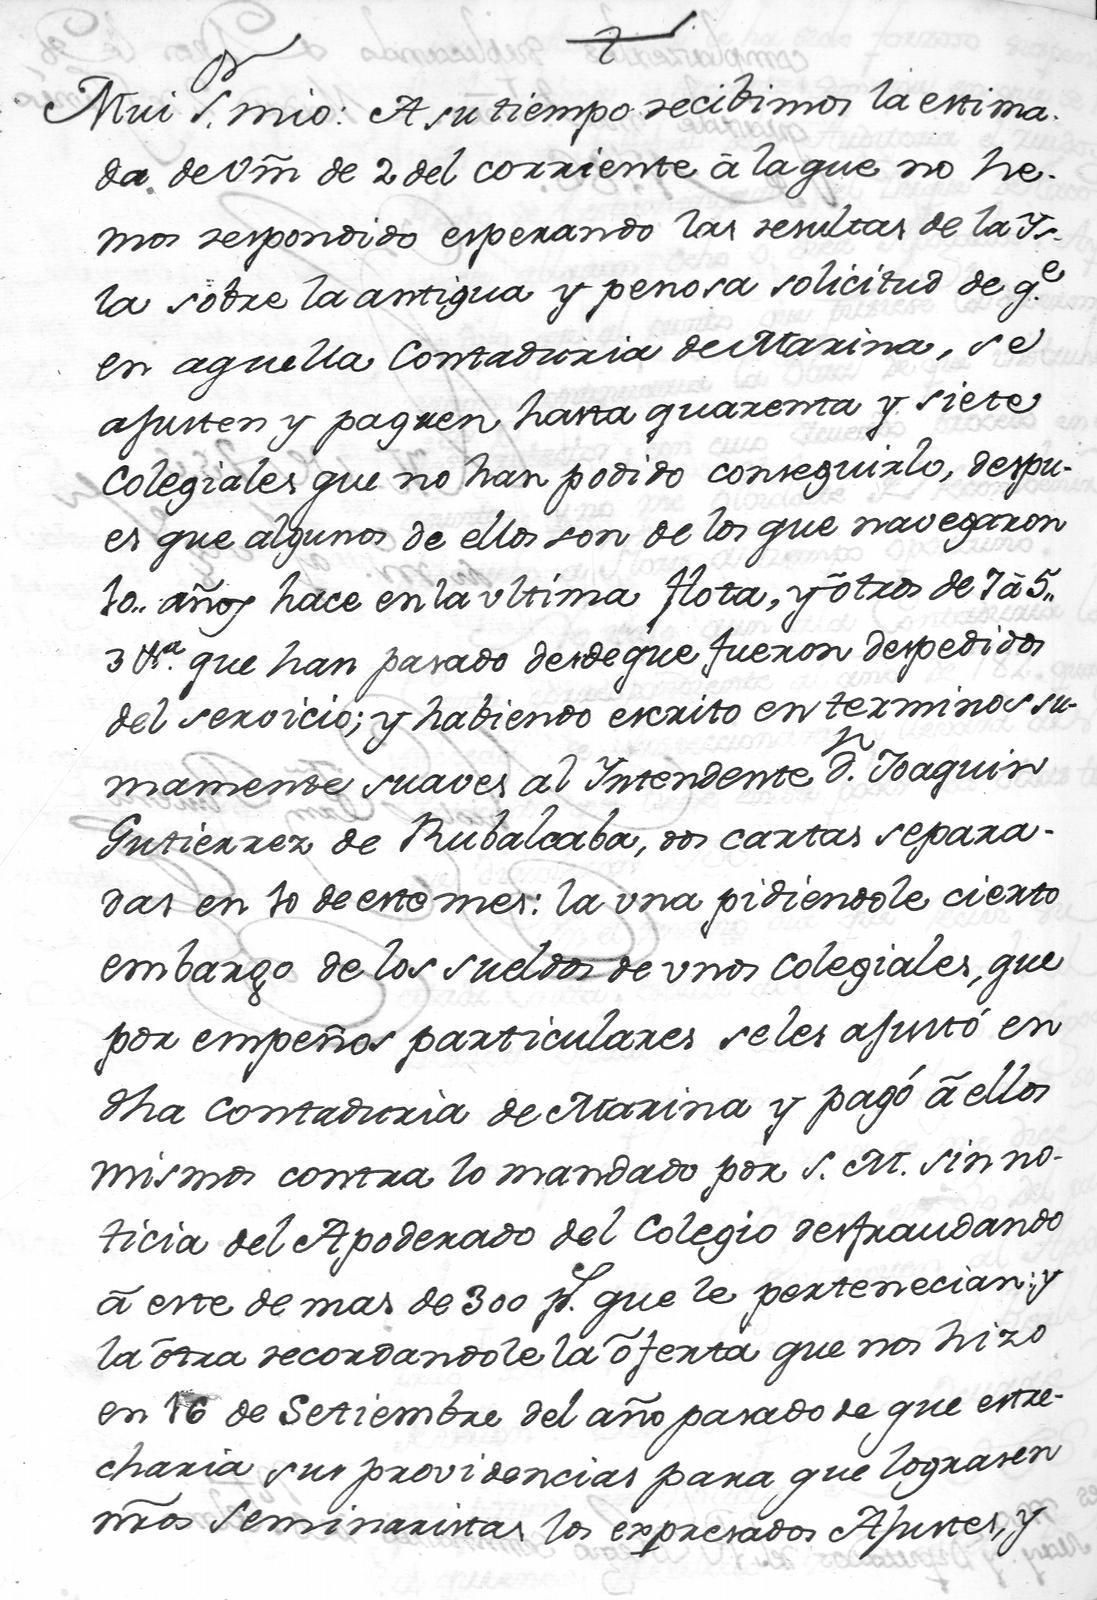 Mui S.or mio: A su tiempo recibimos la estima-
da de Vm̃ de 2 del corriente â la que no he-
mos respondido esperando las resultas de la Is-
la sobre la antigua y penosa solicitud de q.e
en aquella Contaduria de Marina, se
ajusten y paguen hasta quarenta y siete
Colegiales que no han podido conseguirlo, despu-
es que algunos de ellos son de los que navegaron
10,, años hace en la ultima flota, y õtros de 7 ã 5,,
3 que han pasado desde que fueron despedidos
del servicio; y habiendo escrito en terminos su-
mamente suaves al Intendente d.n Joaquin
Gutierrez de Rubalcaba, dos cartas separa-
das en 10 de este mes: la una pidiendole cierto
embargo de los sueldos de unos Colegiales, que
por empeños particulares se les ajustó en
dha Contaduria de Marina y pagó ã ellos
mismos contra lo mandado por S. M. sin no-
ticia del Apoderado del Colegio desfraudando
ã este de mas de 300 p.s que le pertenecian; y
la õtra recordandole la õferta que nos hizo
en 16 de Setiembre del año pasado de que estre-
charia sus providencias para que lograsen
nr̃os Seminaristas los expresados Ajustes, y